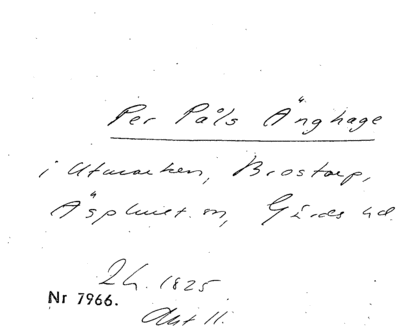 Per Påls Änghage
i Utmarken, Brostorp,
Äsphult sn, Gärds hd.
Lh. 1825
Nr 7966.
Akt 11.